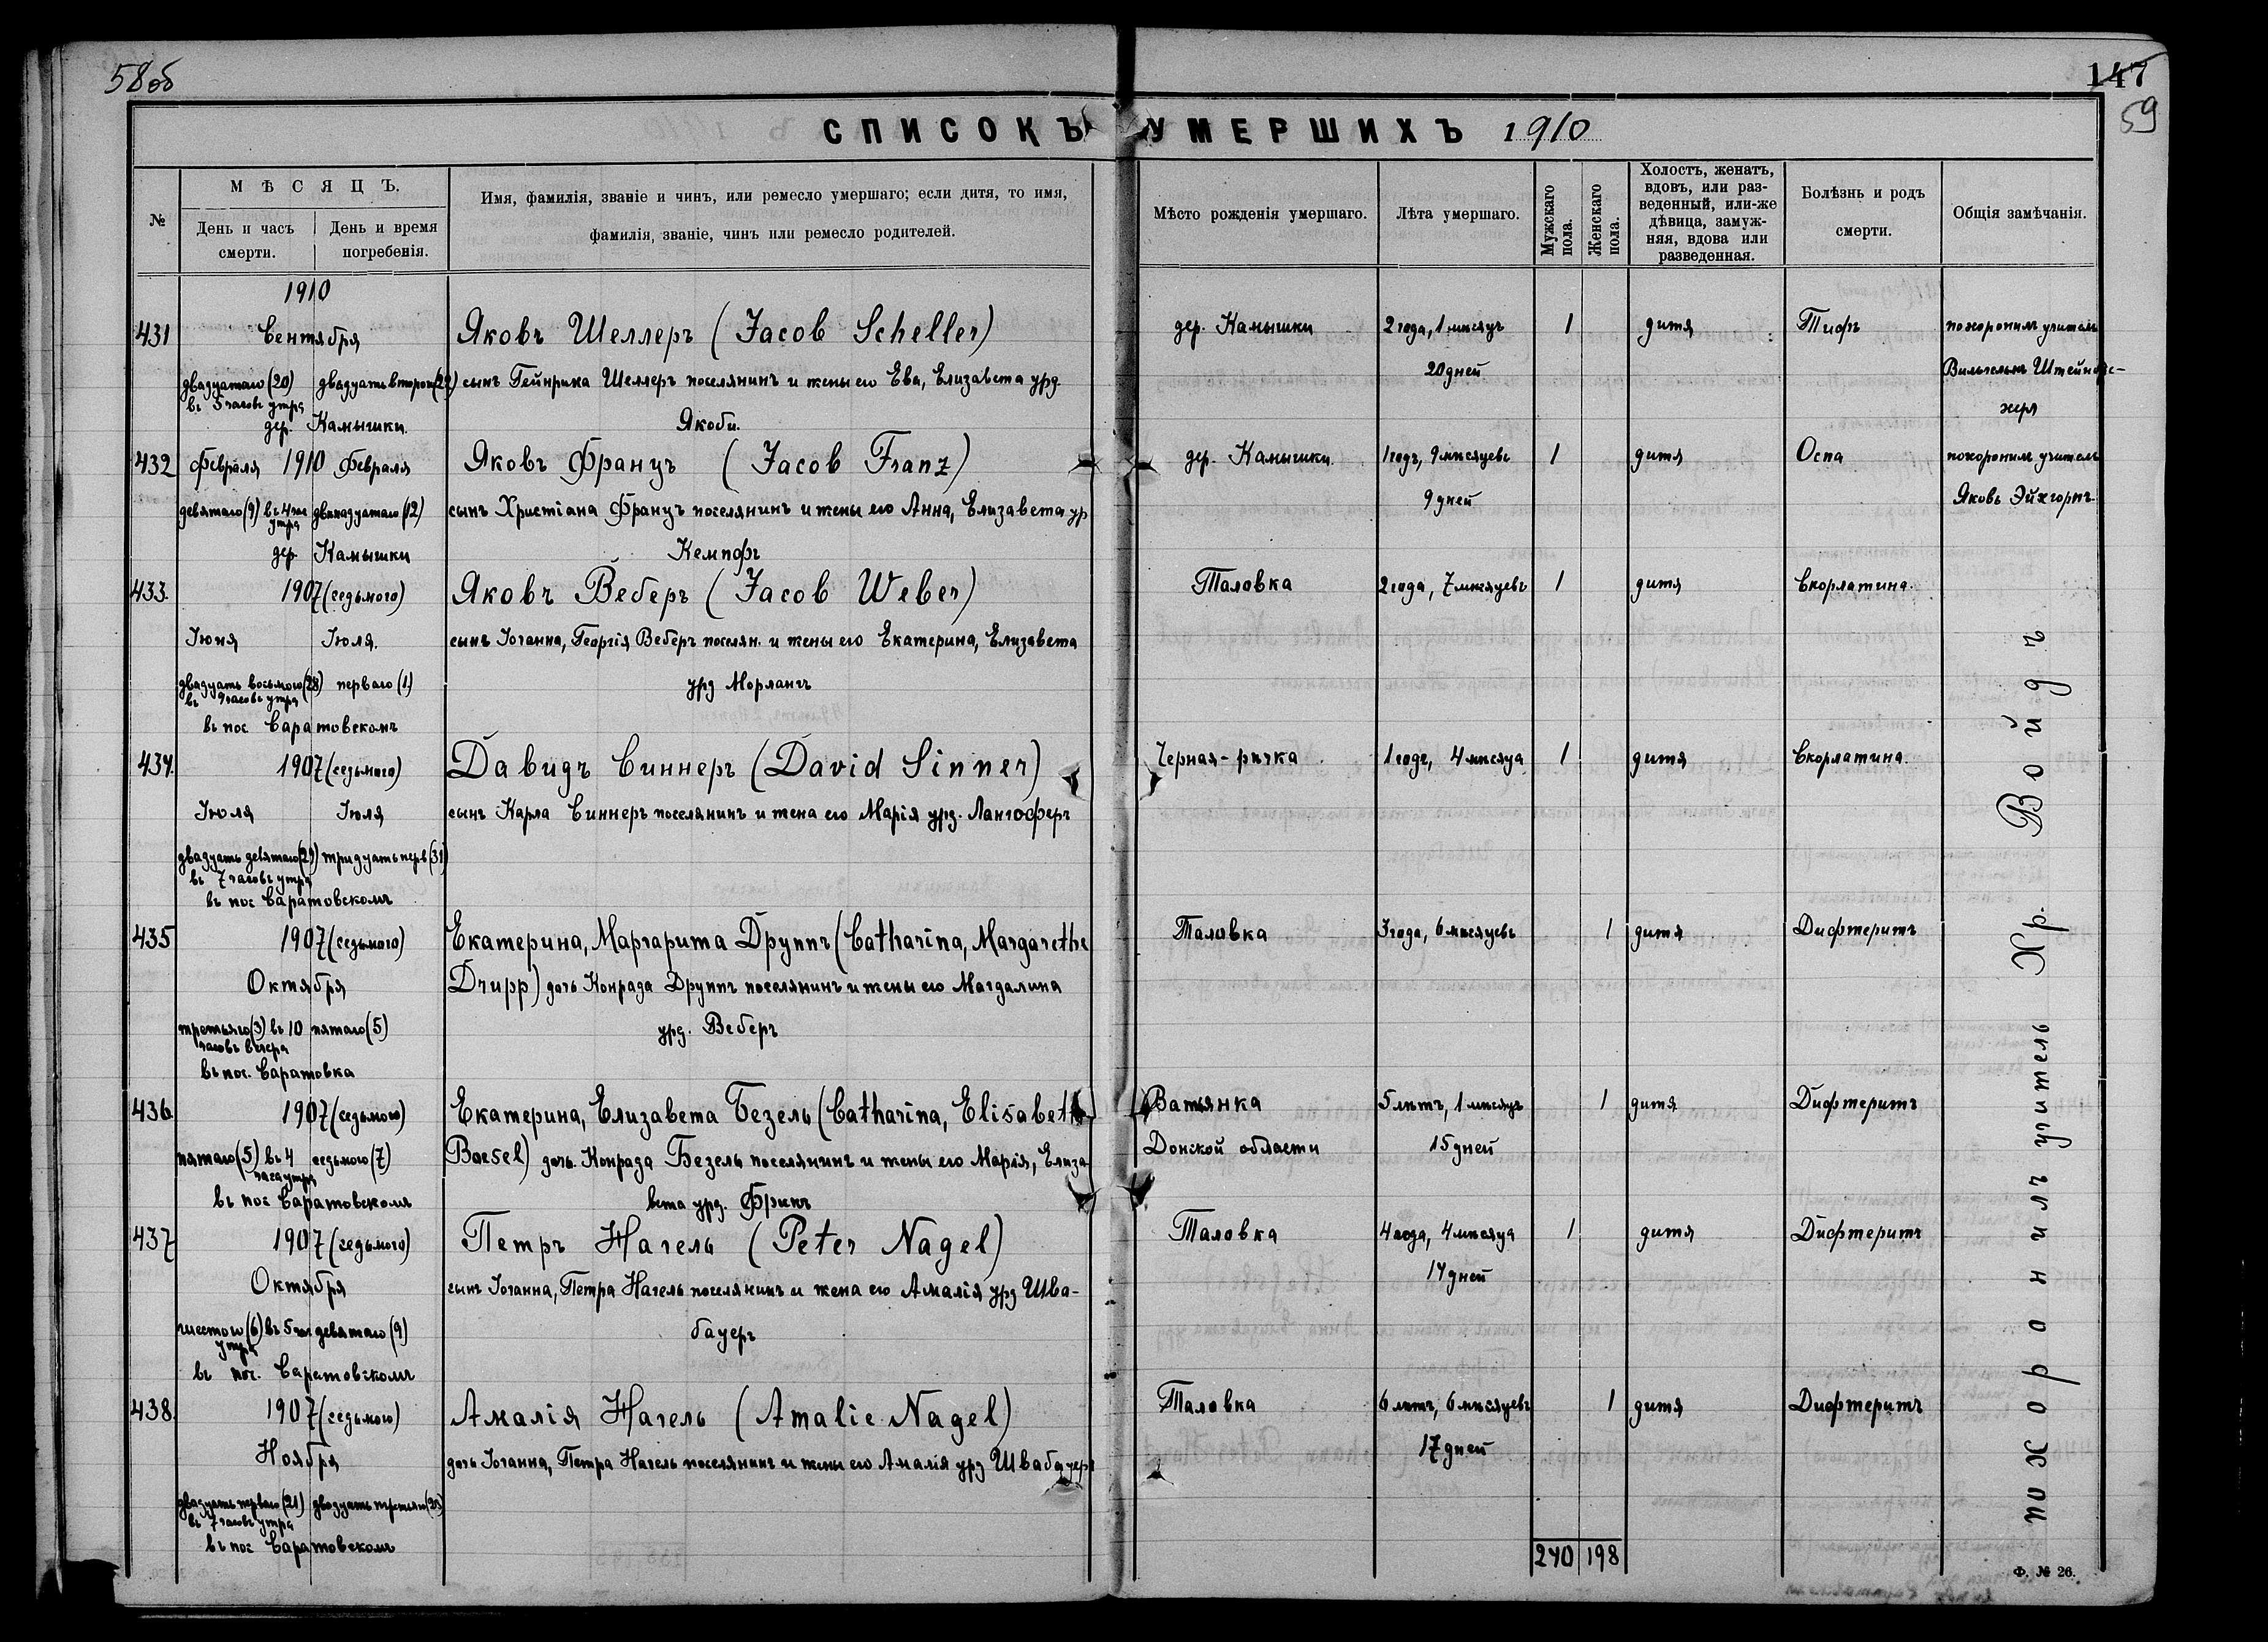 58об
147
59
СПИСОКЪ УМЕРШИХЪ 1910
№
МѢСЯЦЪ.
День и часъ смерти.
День и время погребенія.
Имя, фамилія, званіе и чинъ, или ремесло умершаго; если дитя, то имя,
фамилія, званіе, чинъ или ремесло родителей.
Мѣсто рожденія умершаго.
Лѣта умершаго.
Мужскаго пола.
Женскаго пола.
Холостъ, женатъ,
вдовъ, или раз-
веденный, или-же
дѣвица, замуж-
няя, вдова или
разведенная.
Болѣзнь и родъ
смерти.
Общія замѣчанія.
1910
431 Сентября Яковъ Шеллеръ (Jacob Scheller) дер. Камышки 2 года, 1 мѣсяцъ 1 дитя Тифъ похоронилъ учитель
двадцатаго (20) двадцать второго (22) сынъ Гейнриха Шеллеръ поселянинъ и жены его Ева, Елизавета урд. 20 дней Вильгельмъ
въ 5 часовъ утра
дер. Камышки. Якоби.
432 Февраля 1910 Февраля Яковъ Францъ (Jacob Franz) дер. Камышки. 1 годъ, 9 мѣсяцевъ 1 дитя Оспа похоронилъ учитель
девятаго (9) въ 4 час утра двѣнадцатаго (12) сынъ Христіана Францъ поселянинъ и жены его Анна, Елизавета ур 9 дней Яковъ Эйхгорнъ.
дер. Камышки Кемпфъ
433. 1907 (седьмого) Яковъ Веберъ (Jacob Weber) Таловка 2 года, 7 мѣсяцевъ 1 дитя Скорлатина.
Іюня Іюля. сынъ Іоганна, Георгія Веберъ поселян. и жены его Екатерина, Елизавета
двадцать восьмого (28) перваго (1) урд Морлангъ
въ 9 часовъ утра
въ пос Саратовскомъ
434. 1907 (седьмого) Давидъ Синнеръ (David Sinner) Черная-рѣчка 1 годъ, 4 мѣсяца 1 дитя Скорлатина.
Іюля Іюля сынъ Карла Синнеръ поселянинъ и жена его Марія урд. Лангоферъ
двадцать девятаго (29) тридцать перв (31)
въ 7 часовъ утра
въ пос Саратовскомъ
435 1907 (седьмого) Екатерина, Маргарита Друппъ (Catharina, Margarethe Таловка 3 года, 6 мѣсяцевъ 1 дитя Дифтеритъ
Октября Drupp) дочь Конрада Друппъ поселянинъ и жены его Магдалина
третьяго (3) въ 10 пятаго (5) урд. Веберъ
часовъ вечера
въ пос. Саратовка
436 1907 (седьмого) Екатерина, Елизавета Безель (Catharina, Elisabeth Ватянка 5 лѣтъ, 1 мѣсяцъ 1 дитя Дифтеритъ
пятаго (5) въ 4 седьмого (7) Boesel) дочь. Конрада Безель поселянинъ и жены его Марія, Елиза- Донской области 15 дней
часа утра
въ пос Саратовскомъ вета урд. Фрикъ
437 1907 (седьмого) Петръ Нагель (Peter Nagel) Таловка 4 года, 4 мѣсяца 1 дитя Дифтеритъ
Октября сынъ Іоганна, Петра Нагель поселянинъ и жена его Амалія урд Шва- 14 дней
шестого (6) въ 5 час девятаго (9) бауеръ
утра
въ пос. Саратовскомъ
438. 1907 (седьмого) Амалія Нагель (Amalie Nagel) Таловка 6 лѣтъ, 6 мѣсяцевъ 1 дитя Дифтеритъ
Ноября дочь Іоганна, Петра Нагель поселянинъ и жены его Амалія урд Швабауеръ 17 дней
двадцать перваго (21) двадцать третьяго (23)
въ 7 часовъ утра
въ пос Саратовскомъ
240 198
похоронилъ учитель Хр. Войдъ
Ф. № 26.